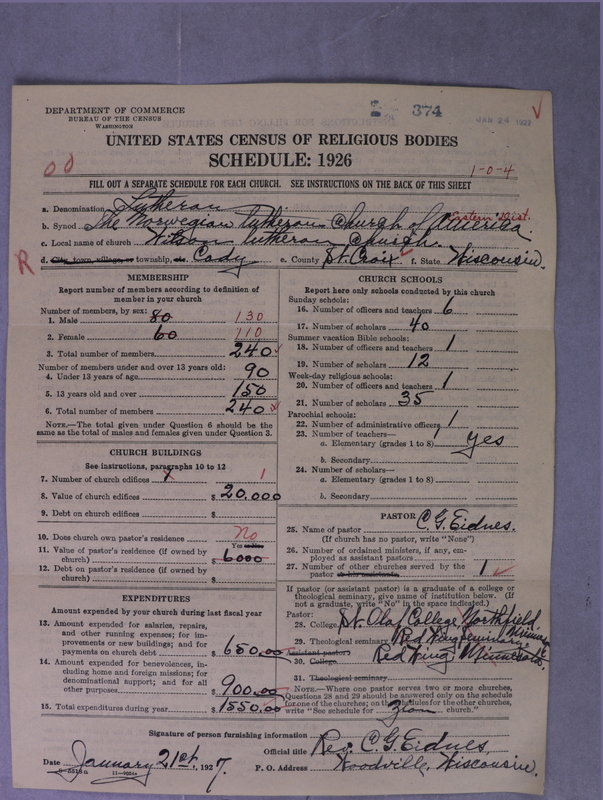 DEPARTMENT OF COMMERCE
BUREAU OF THE CENSUS
WASHINGTON
374
JAN 24 1927
UNITED STATES CENSUS OF RELIGIOUS BODIES
SCHEDULE: 1926
1-0-4
FILL OUT A SEPARATE SCHEDULE FOR EACH CHURCH. SEE INSTRUCTIONS ON THE BACK OF THIS SHEET
a. Denomination Lutheran
Eastern Dist.
b. Synod The Norwegian Lutheran Church of America.
c. Local name of church Wilson Lutheran Church.
R
d. City, town, village, or township, etc. Cady e. County St. Croix f. State Wisconsin.
MEMBERSHIP
Report number of members according to definition of member in your church
Number of members, by sex:
1. Male 80 130
2. Female 60 110
3. Total number of members 240
Number of members under and over 13 years old:
4. Under 13 years of age 90
5. 13 years old and over 150
6. Total number of members 240
NOTE.—The total given under Question 6 should be
same as the total of males and females given under Question 3.
CHURCH BUILDINGS
See instructions, paragraphs 10 to 12
7. Number of church edifices 1
8. Value of church edifices $ 20.000
9. Debt on church edifices $
10. Does church own pastor's residence No
Yes or No
11. Value of pastor's residence (if owned by
church) $ 6000
12. Debt on pastor's residence (if owned by
church) $
EXPENDITURES
Amount expended by your church during last fiscal year
13. Amount expended for salaries, repairs,
and other running expenses; for improvements or new buildings; and for
payments on church debt $ 650.00
14. Amount expended for benevolences, including home and foreign missions; for
denominational support; and for all
other purposes $ 900.00
15. Total expenditures during year $ 1550.00
CHURCH SCHOOLS
Report here only schools conducted by this church
Sunday schools:
16. Number of officers and teachers 6
17. Number of scholars 40
Summer vacation Bible schools:
18. Number of officers and teachers 1
19. Number of scholars 12
Week-day religious schools:
20. Number of officers and teachers 1
21. Number of scholars 35
Parochial schools:
22. Number of administrative officers 1
23. Number of teachers— 1
a. Elementary (grades 1 to 8) yes
b. Secondary
24. Number of scholars—
a. Elementary (grades 1 to 8)
b. Secondary
PASTOR
25. Name of pastor C. G. Eidnes.
(If church has no pastor, write "None")
26. Number of ordained ministers, if any, employed as assistant pastors
27. Number of other churches served by the
pastor or his assistants 1
If pastor (or assistant pastor) is a graduate of a college or
theological seminary, give name of institution below. (If
not a graduate, write "No" in the space indicated.)
Pastor:
28. College St. Olaf College, Northfield, Minn.
29. Theological seminary Red Wing Seminary
Assistant pastor: Red Wing, Minnesota.
30. College
31. Theological seminary
NOTE.—Where one pastor serves two or more churches,
Questions 28 and 29 should be answered only on the schedule
for one of the churches; on the schedules for the other churches,
write "See schedule for Zion church."
Signature of person furnishing information
Official title Rev. C. G. Eidnes,
Date January 21st, 1927. P. O. Address Woodville, Wisconsin.